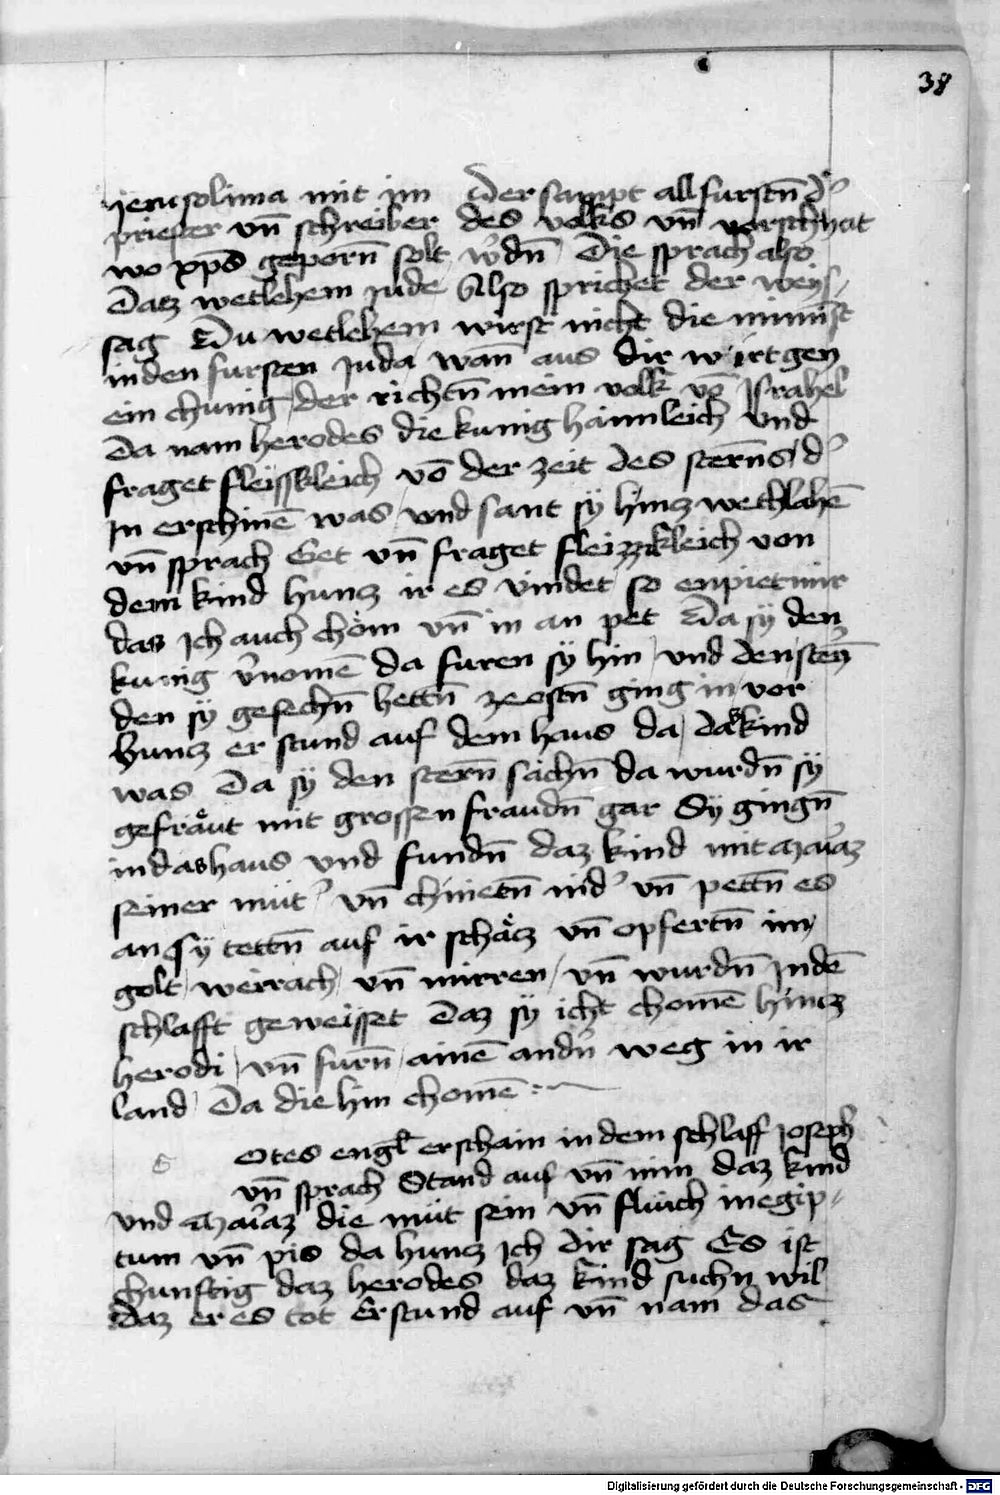 38
jerusolima mit im Wer sampt all furstn̄ d'
priester vn̄ schreiber des volks vn̄ vorschhat
wo xp̄s geporn̄ solt w'dn̄ Die sprach also
Datz wetlehem Jude Also sprichet der weys/
sag Du wetlehem wirst nicht die minnst
in den fursten Juda wan̄ aus dir wirt gen
ein chunig / der richtn̄ mein volk vō Jsrahel
Da nam herodes die kunig haimleich vnd
fraget fleissikleich vō der zeit des sterns / d'
Jn erschinē was / vnd sant sy hincz wethlahē
vn̄ sprach Get vn̄ fraget fleizzikleich von
dem kind huncz ir es vindet / so enpiet mir
das Jch auch chöm vn̄ in an pet Da sy den
kunig v'nomē da furen sy hin / vnd den stern̄
den sy gesechn̄ hettn̄ ze ostn̄ ging in vor
huncz er stund auf dem haus da / da kind
was Da sy den stern̄ sachn̄ da wurdn̄ sy
gefräut mit grossen fraudn̄ gar Sy gingn̄
in das haus vnd fundn̄ daz kind mit Mariaz
seiner mut' vn̄ chnietn̄ nid' vn̄ pettn̄ es
an Sy tettn̄ auf ir schätz vn̄ opfertn̄ im /
golt / weirach / vn̄ mirren / vn̄ wurdn̄ Jn dē
schlafft geweisset Daz sy icht chomē hincz
herodi / vn̄ furn̄ / ainē and'n̄ weg in ir
land / Da die hin chomē :~
G Otes engl̄ erschain in dem schlaff Joseph
vn̄ sprach Stand auf vn̄ nim daz kind
vnd Mariaz die mut sein vn̄ fluich in egip-
tum vn̄ pis da huncz Jch dir sag Es ist
chunftig daz herodes daz kind suchn wil
Daz er es tot Er stund auf vn̄ nam das
Digitalisierung gefördert durch die Deutsche Forschungsgemeinschaft - DFG